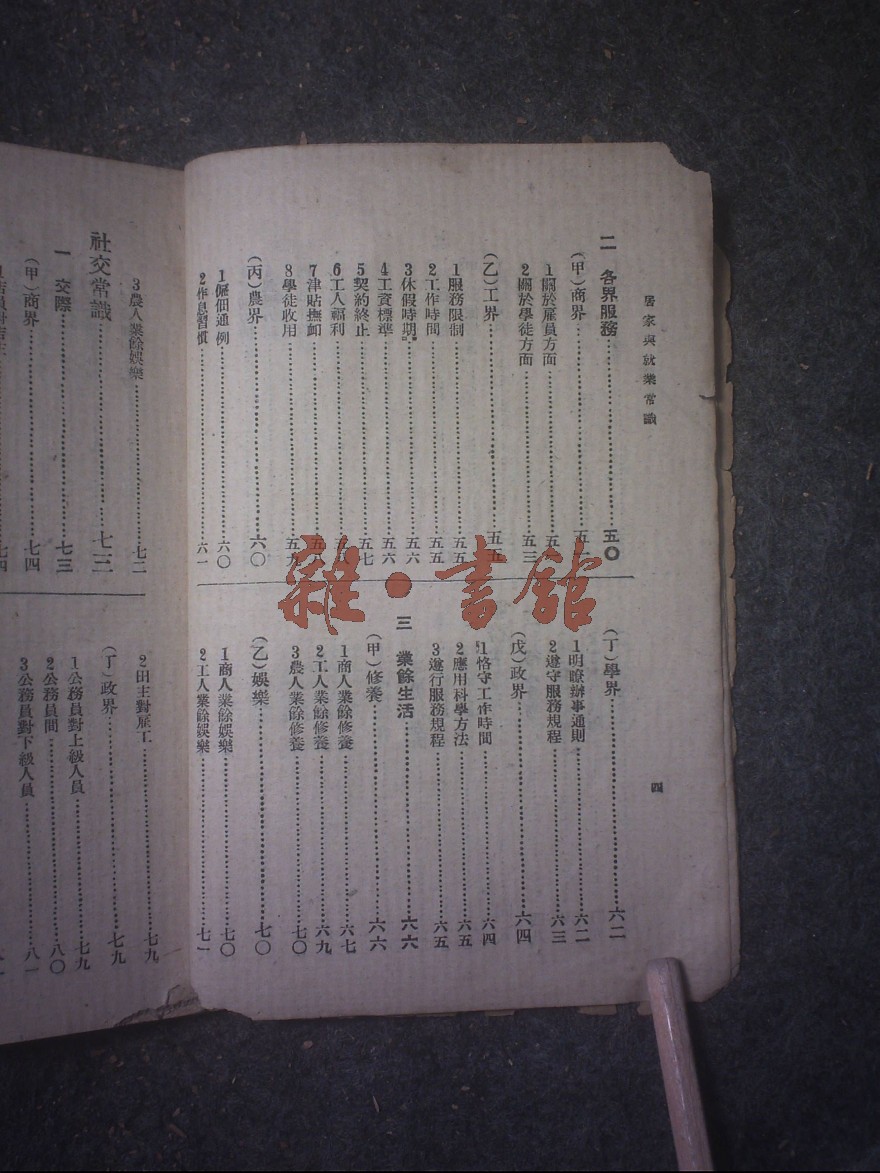 居家與就業常識
四
二 各界服務……五〇
(甲)商界……五
1關於雇員方面……五
2關於學徒方面……五三
(乙)工界……五五
1服務限制……五五
2工作時間……五五
3休假時期……五六
4工資標準……五六
5契約終止……五七
6工人福利……五
7津貼撫卹……五八
8學徒收用……五九
(丙)農界……六〇
1僱佃通例……六〇
2作息習慣……六一
(丁)學界……六二
1明瞭辦事通則……六二
2遵守服務規程……六三
(戊)政界……六四
1恪守工作時間……六四
2應用科學方法……六五
3遂行服務規程……六五
三 業餘生活……六六
(甲)修養……六六
1商人業餘修養……六七
2工人業餘修養……六九
3農人業餘修養……七〇
(乙)娛樂……七〇
1商人業餘娛樂……七〇
2工人業餘娛樂……七一
3農人業餘娛樂……七二
社交常識……七三
一 交際……七三
(甲)商界……七四
1店員對店主……七四
2田主對雇工……七九
(丁)政界……七九
1公務員對上級人員……七九
2公務員間……八〇
3公務員對下級人員……八一
雜·書館